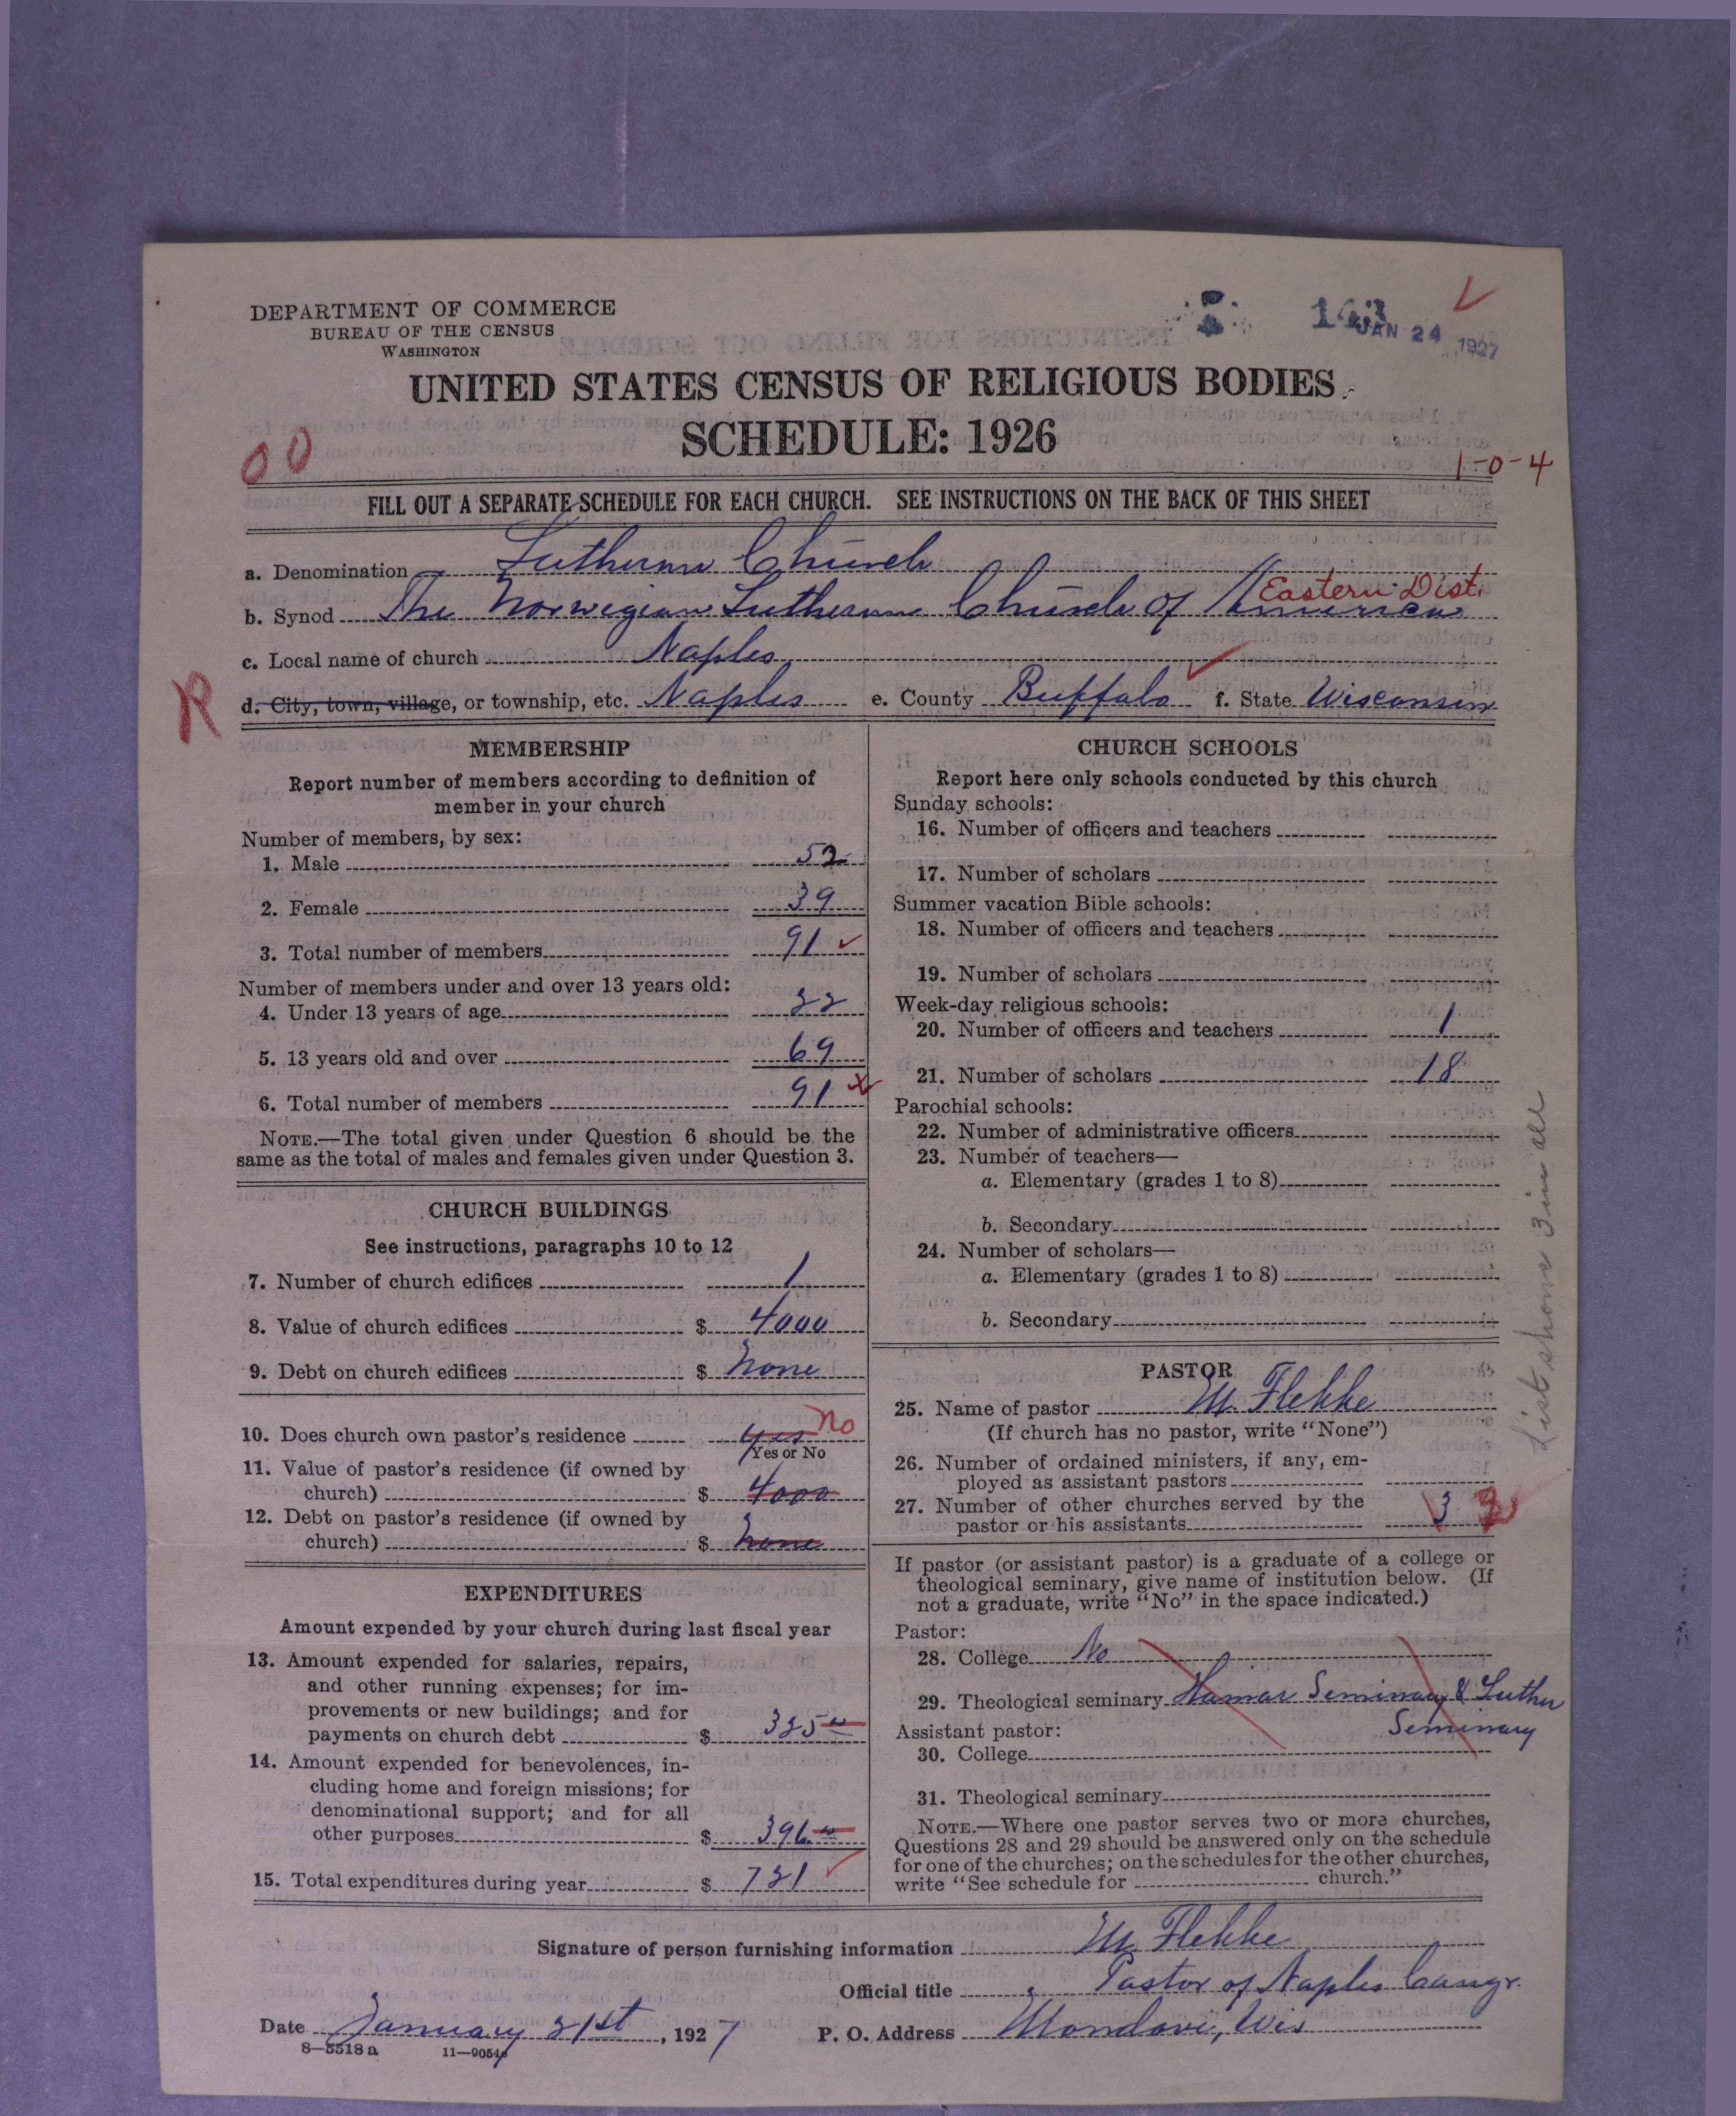 DEPARTMENT OF COMMERCE
BUREAU OF THE CENSUS
WASHINGTON
143
JAN 24 1927
UNITED STATES CENSUS OF RELIGIOUS BODIES
SCHEDULE: 1926
00
1-0-4
FILL OUT A SEPARATE SCHEDULE FOR EACH CHURCH. SEE INSTRUCTIONS ON THE BACK OF THIS SHEET
a. Denomination Lutheran Church
Eastern Dist.
b. Synod The Norwegian Lutheran Church of America
c. Local name of church Naples
R
d. City, town, village, or township, etc. Naples e. County Buffalo f. State Wisconsin
MEMBERSHIP
Report number of members according to definition of
member in your church
Number of members, by sex:
1. Male 52
2. Female 39
3. Total number of members 91
Number of members under and over 13 years old:
4. Under 13 years of age 22
5. 13 years old and over 69
6. Total number of members 91
NOTE.—The total given under Question 6 should be the
same as the total of males and females given under Question 3.
CHURCH BUILDINGS
See instructions, paragraphs 10 to 12
7. Number of church edifices 1
8. Value of church edifices $ 4000
9. Debt on church edifices $ none
10. Does church own pastor's residence yes No
Yes or No
11. Value of pastor's residence (if owned by
church) $ 4000
12. Debt on pastor's residence (if owned by
church) $ none
EXPENDITURES
Amount expended by your church during last fiscal year
13. Amount expended for salaries, repairs,
and other running expenses; for im-
provements or new buildings; and for
payments on church debt $ 325
14. Amount expended for benevolences, in-
cluding home and foreign missions; for
denominational support; and for all
other purposes $ 396
15. Total expenditures during year $ 721
CHURCH SCHOOLS
Report here only schools conducted by this church
Sunday schools:
16. Number of officers and teachers
17. Number of scholars
Summer vacation Bible schools:
18. Number of officers and teachers
19. Number of scholars
Week-day religious schools:
20. Number of officers and teachers 1
21. Number of scholars 18
Parochial schools:
22. Number of administrative officers
23. Number of teachers—
a. Elementary (grades 1 to 8)
b. Secondary
24. Number of scholars—
a. Elementary (grades 1 to 8)
b. Secondary
List shows 3 in all
PASTOR
25. Name of pastor M. Flekke
(If church has no pastor, write "None")
26. Number of ordained ministers, if any, em-
ployed as assistant pastors
27. Number of other churches served by the
pastor or his assistants 3
If pastor (or assistant pastor) is a graduate of a college or
theological seminary, give name of institution below. (If
not a graduate, write "No" in the space indicated.)
Pastor:
28. College No
29. Theological seminary Hamar Seminary & Luther
Seminary
Assistant pastor:
30. College
31. Theological seminary
NOTE.—Where one pastor serves two or more churches,
Questions 28 and 29 should be answered only on the schedule
for one of the churches; on the schedules for the other churches,
write "See schedule for church."
Signature of person furnishing information M Flekke
Official title Pastor of Naples Congr.
Date January 21st, 1927 P. O. Address Mondovi, Wis
8—5518a 11—9054